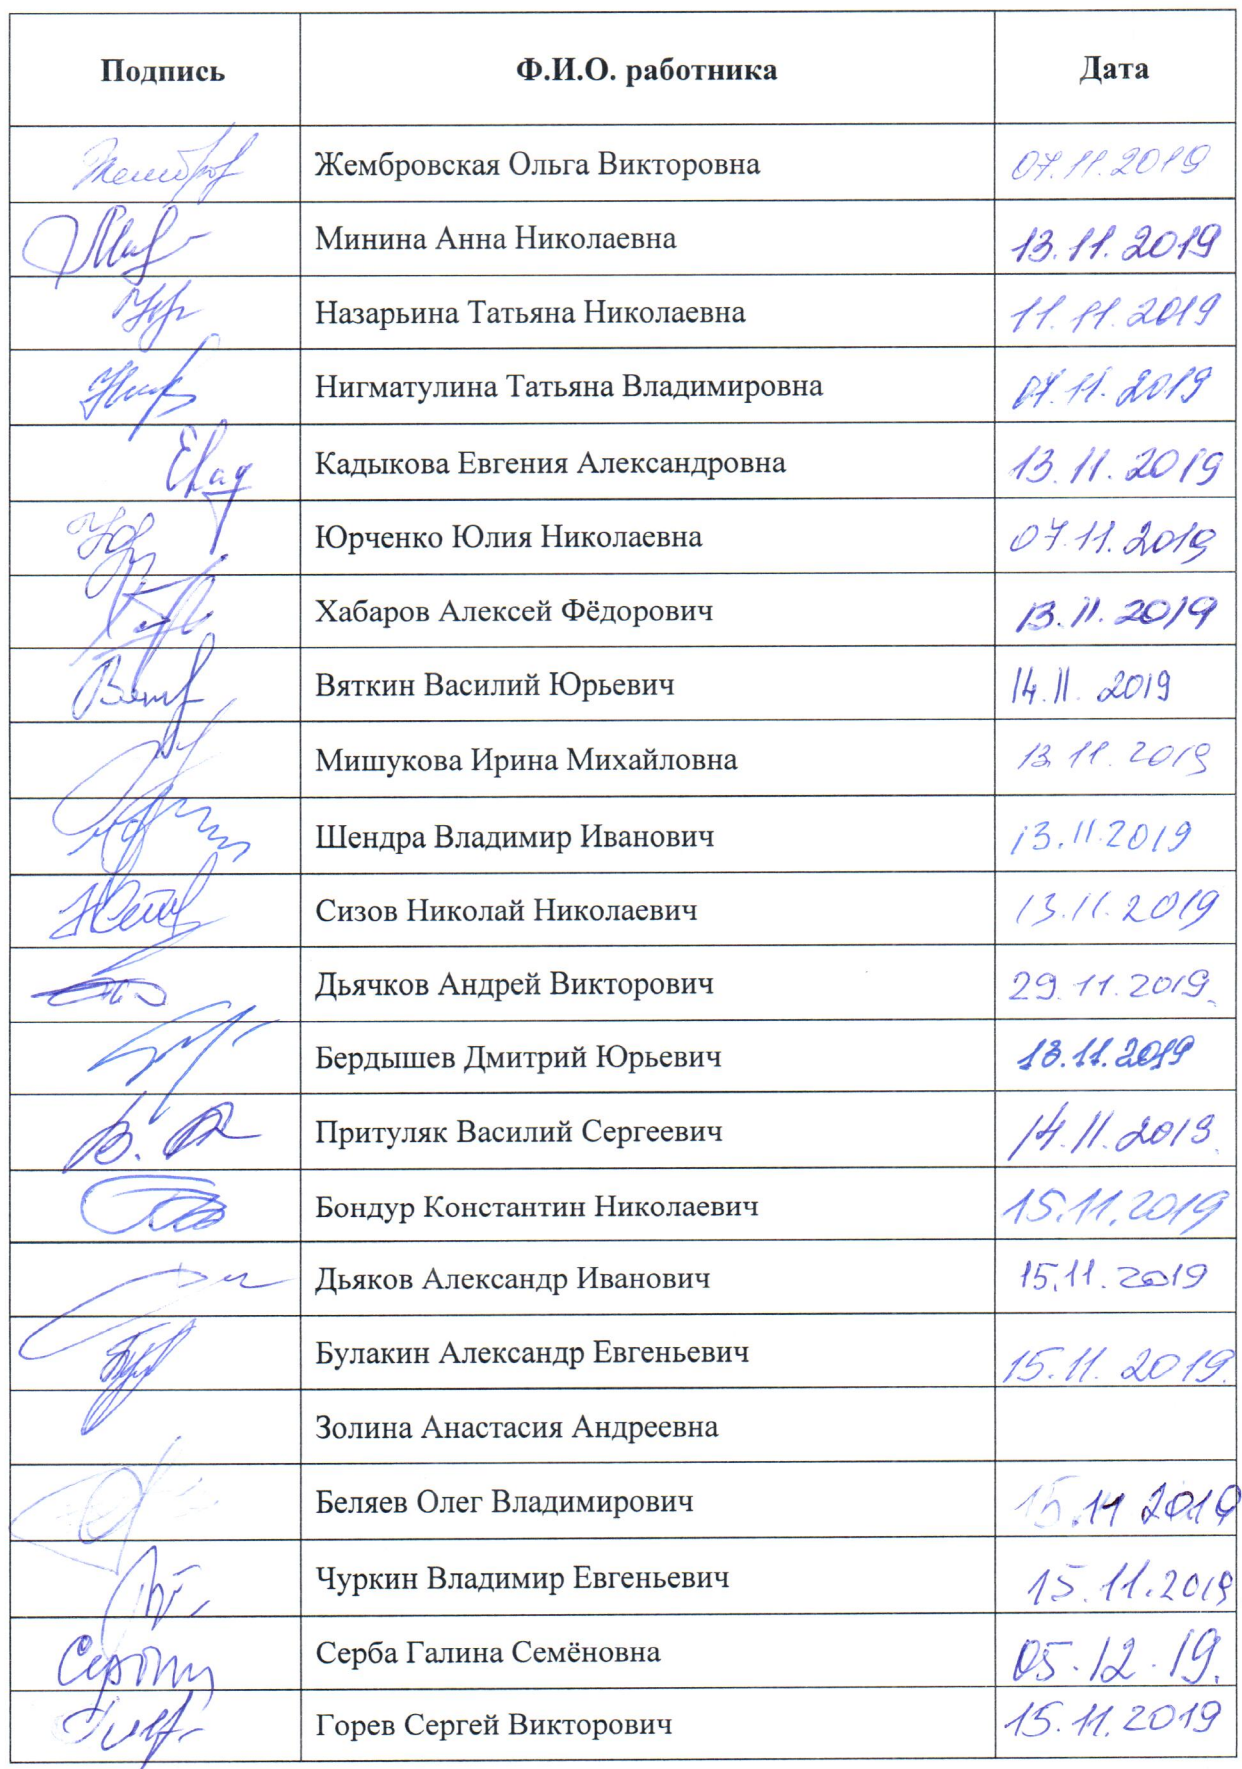 Подпись Ф.И.О. работника Дата
Жембровская Ольга Викторовна 07.11.2019
Минина Анна Николаевна 13.11.2019
Назарьина Татьяна Николаевна 11.11.2019
Нигматулина Татьяна Владимировна 07.11.2019
Кадыкова Евгения Александровна 13.11.2019
Юрченко Юлия Николаевна 07.11.2019
Хабаров Алексей Фёдорович 13.11.2019
Вяткин Василий Юрьевич 14.11.2019
Мишукова Ирина Михайловна 13.11.2019
Шендра Владимир Иванович 13.11.2019
Сизов Николай Николаевич 13.11.2019
Дьячков Андрей Викторович 29.11.2019.
Бердышев Дмитрий Юрьевич 13.11.2019
Притуляк Василий Сергеевич 14.11.2019.
Бондур Константин Николаевич 15.11.2019
Дьяков Александр Иванович 15.11.2019
Булакин Александр Евгеньевич 15.11.2019.
Золина Анастасия Андреевна
Беляев Олег Владимирович 15.11 2019
Чуркин Владимир Евгеньевич 15.11.2019
Серба Галина Семёновна 05.12.19.
Горев Сергей Викторович 15.11.2019